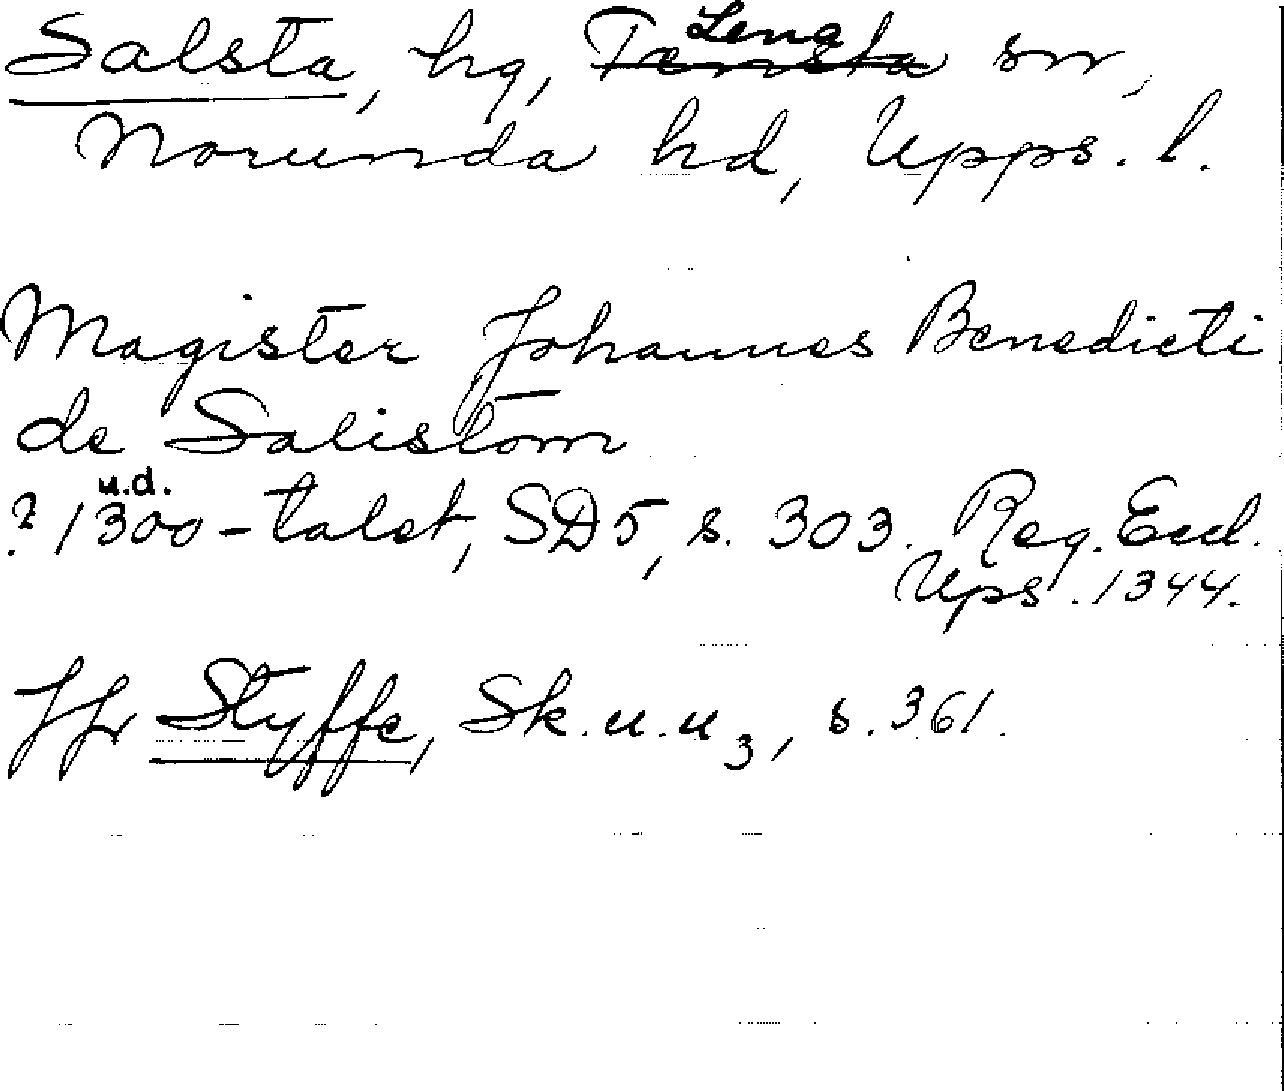 Salsta, hg, Tensta Lena sn,
Norunda hd, Upps. l.
Magister Johannes Benedicti
de Salistom
u.d.
? 1300-talet, SD5, s. 303. Reg. Eccl.
Ups. 1344.
Jfr Styffe, Sk.u.u3, s. 361.